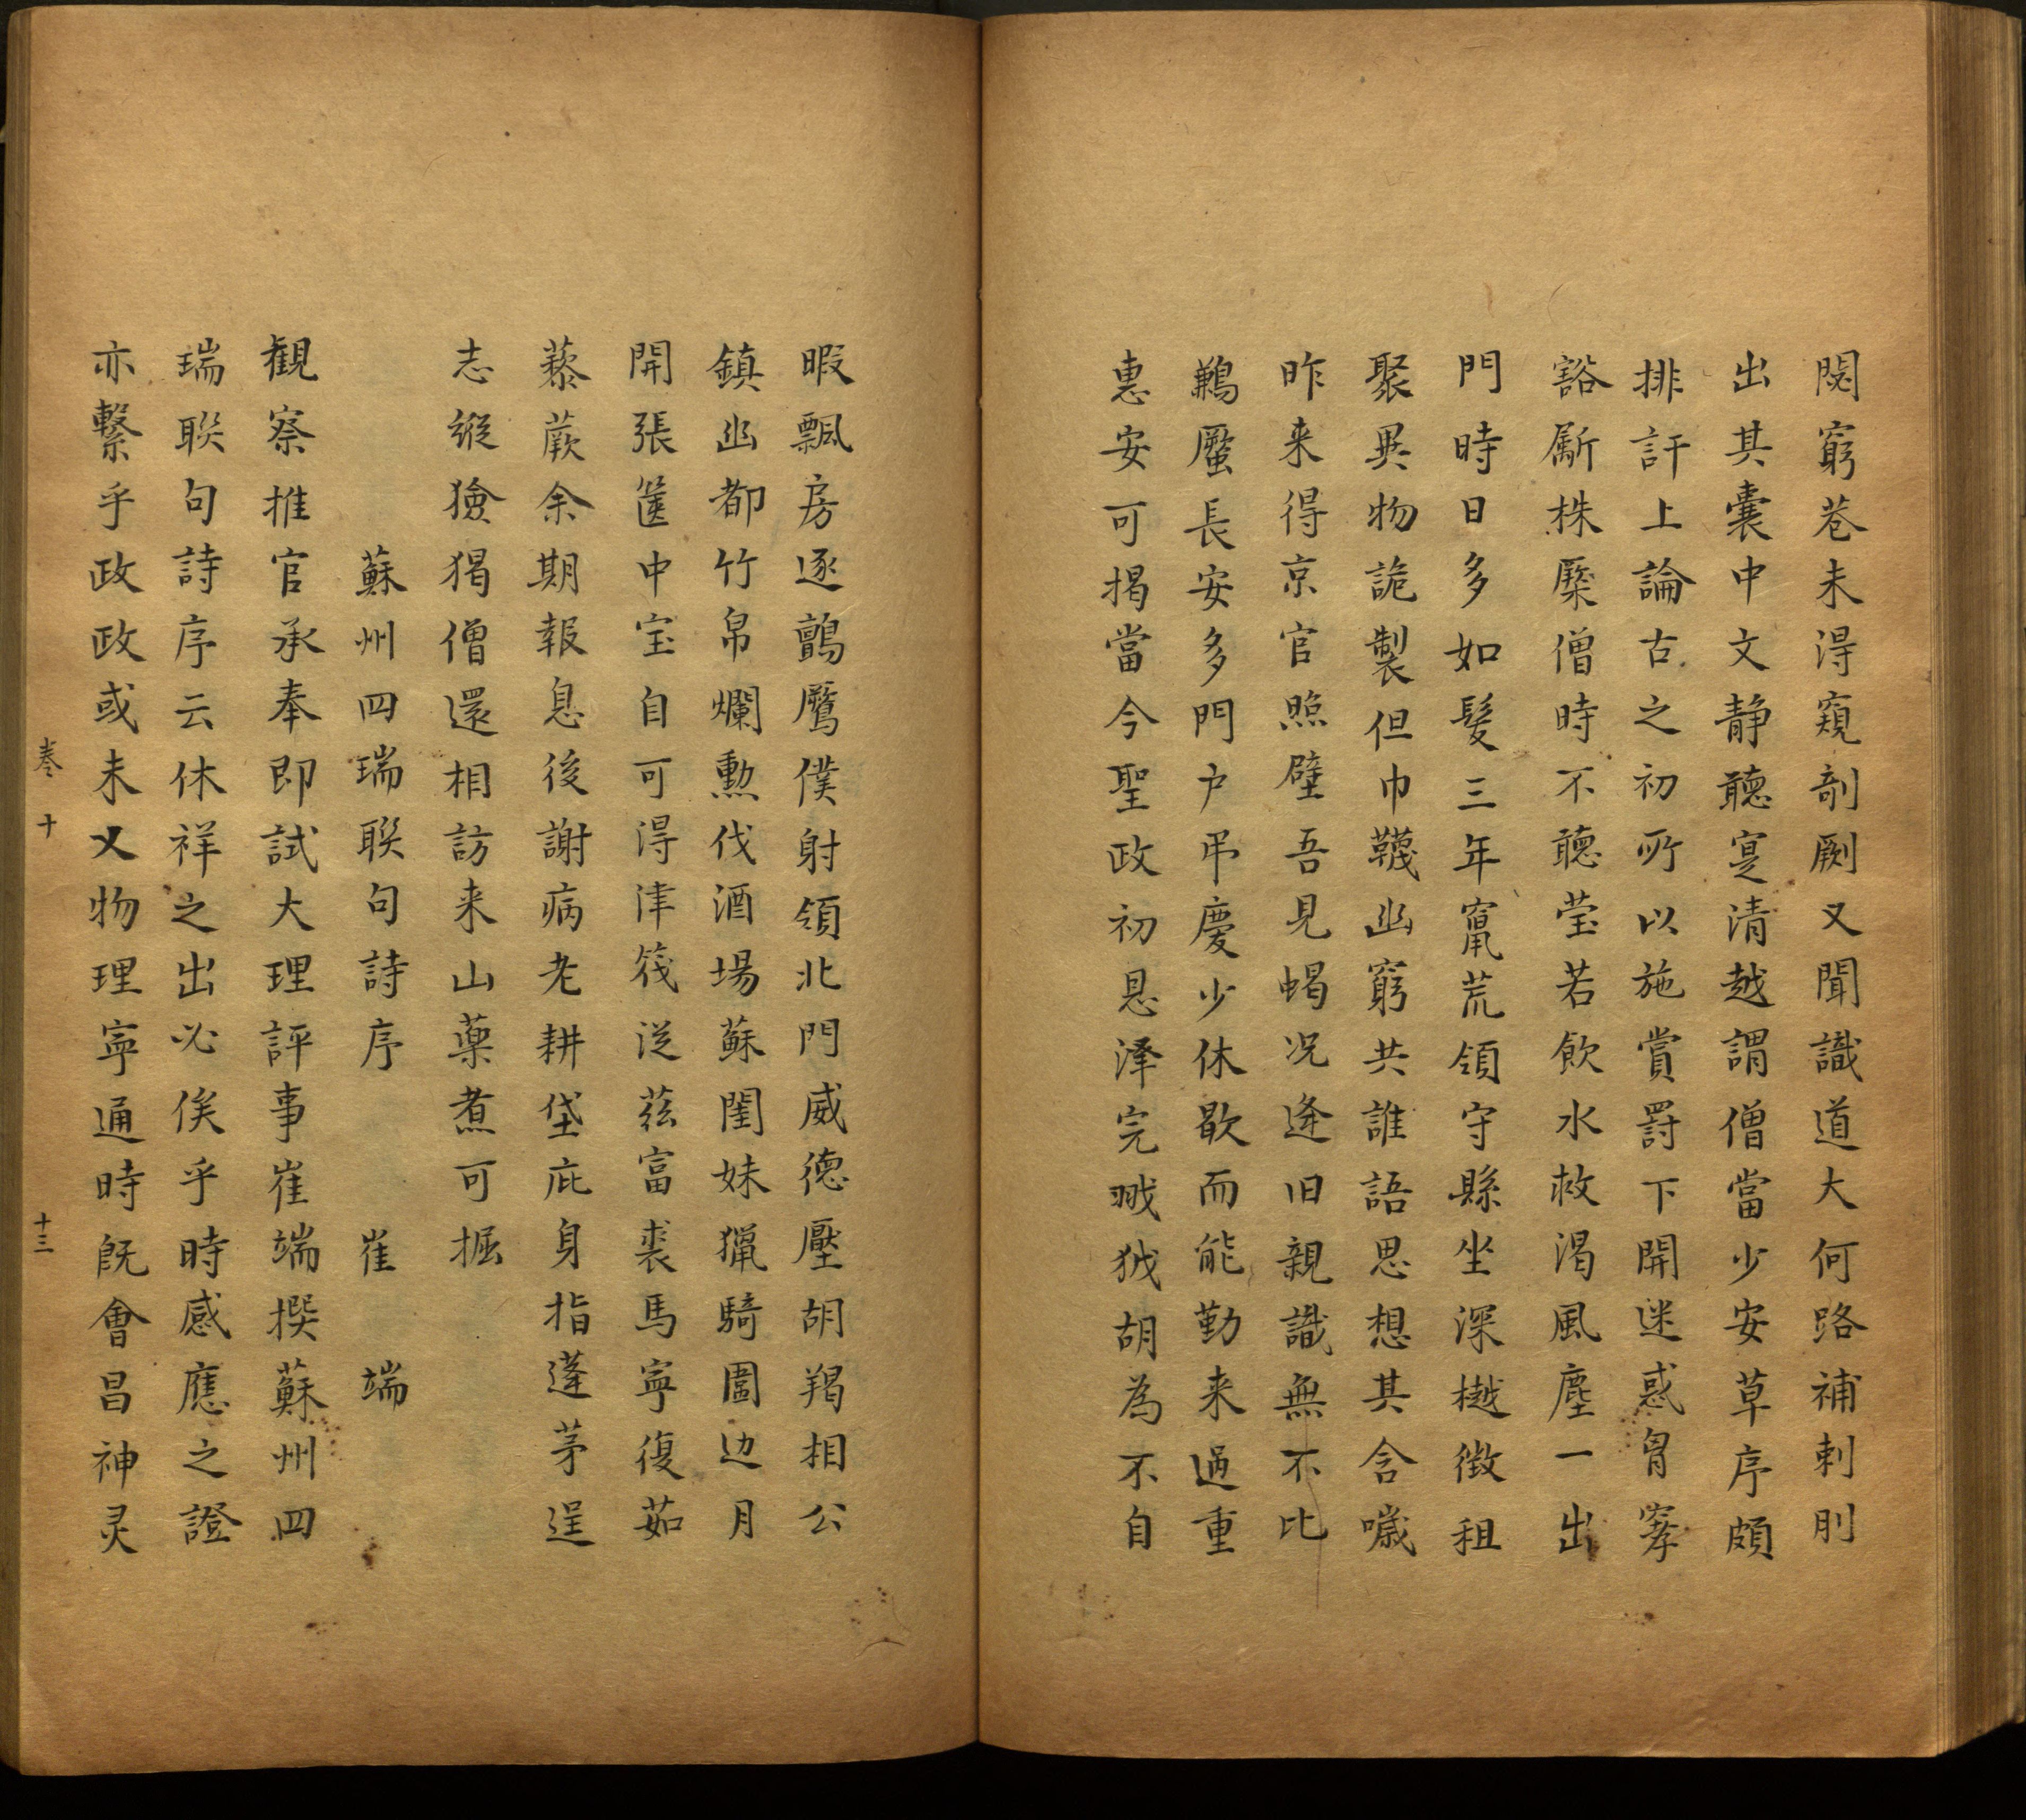 閱窮巷未淂窺剞劂又聞識道大何路補剌刖
出其囊中文静聽寔清越謂僧當少安草序頗
排訐上論古之初所以施賞罸下開迷惑胷窙
豁斸株橜僧時不聽瑩若飲水救渴風塵一出
門時日多如髮三年竄荒領守縣坐深樾徴租
聚異物詭製但巾韈幽窮共誰語思想其含噦
昨来得京官照壁吾見蝎况逄旧親識無不比
鶼蟨長安多門户弔慶少休歇而能勤来過重
惠安可揭當今聖政初恩澤完𤝞狘胡為不自
暇飄房逐鸇鷹僕射領北門威徳壓胡羯相公
鎮幽都竹帛爛勲伐酒場蘇閨姝獵騎圍边月
開張篋中宝自可淂津筏従茲富裘馬寧復茹
藜蕨余期報息後謝病老耕垡庇身指蓬茅逞
志縱獫猲僧還相訪来山藥煮可掘
蘇州四瑞聮句詩序　崔端
觀察推官承奉郎試大理評事崔端撰蘇州四
瑞聮句詩序云休祥之出必俟乎時感應之證
亦繫乎政政或未乂物理寧通時既會昌神灵
卷十
十三